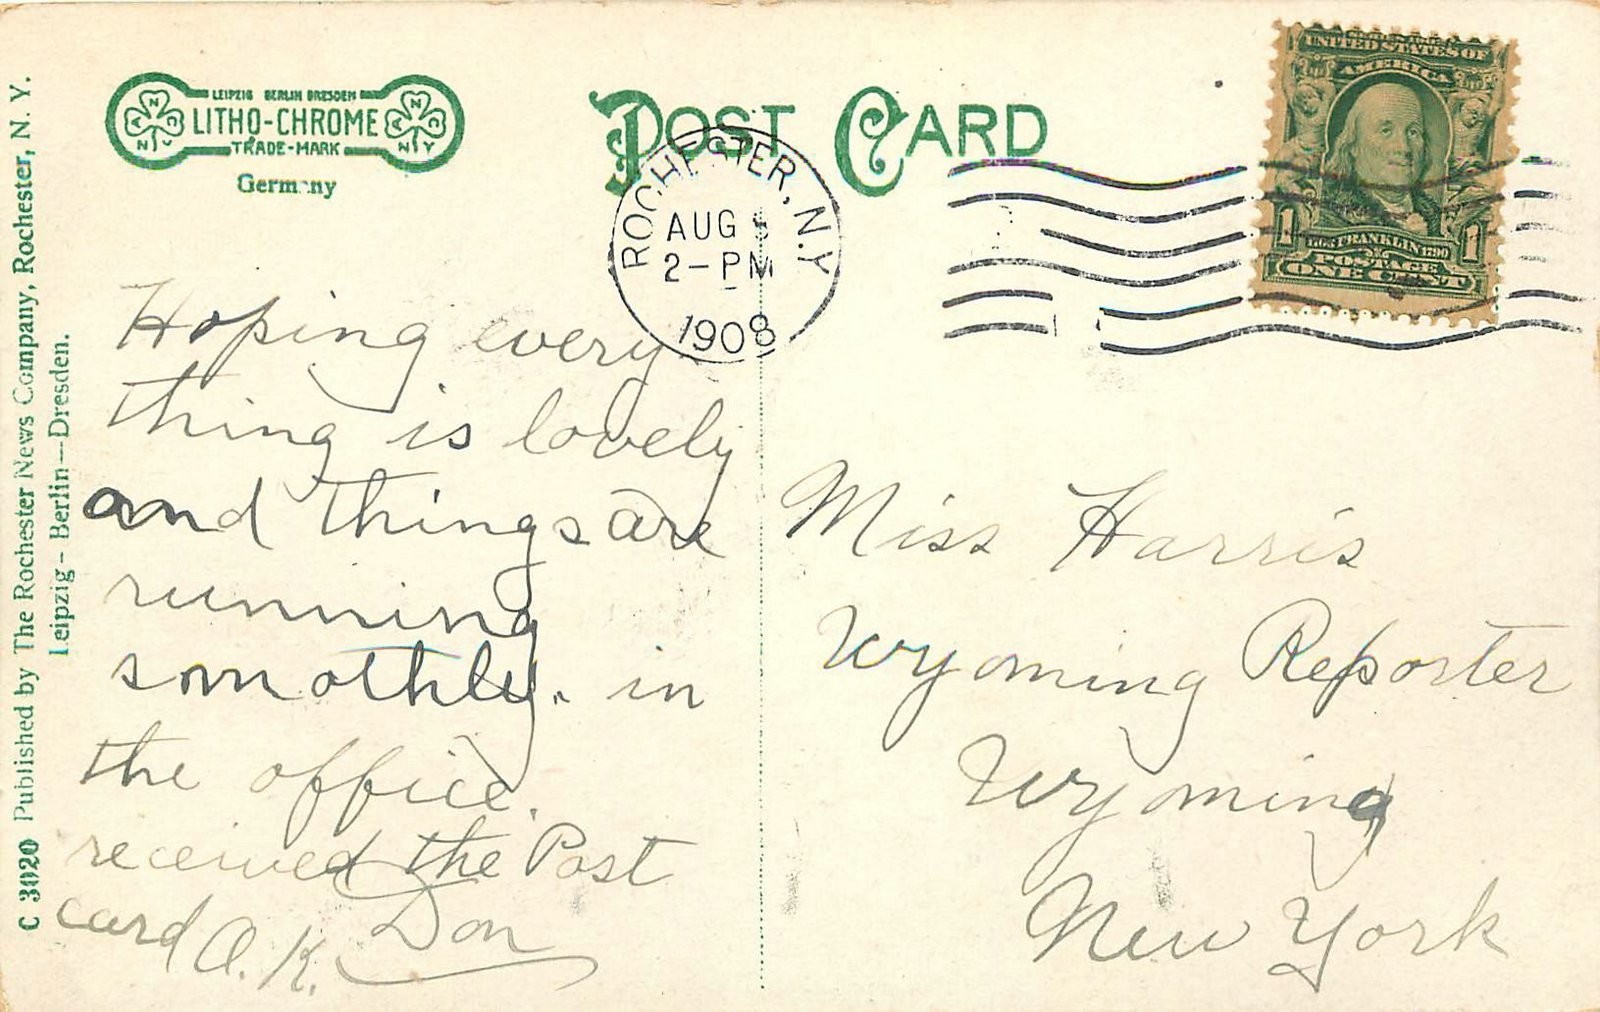 LEIPZIG BERLIN DRESDEN
LITHO-CHROME
TRADE-MARK
Germany
POST CARD
ROCHESTER, N.Y.
AUG
2-PM
1908
UNITED STATES OF
AMERICA
1 1
FRANKLIN
POSTAGE
ONE CENT
C 3020 Published by The Rochester News Company, Rochester, N. Y.
Leipzig - Berlin - Dresden.
Hoping every
thing is lovely
and things are
running
smothly. in
the office.
received the Post
card O.K. Don
Miss Harris
Wyoming Reporter
Wyoming
New York